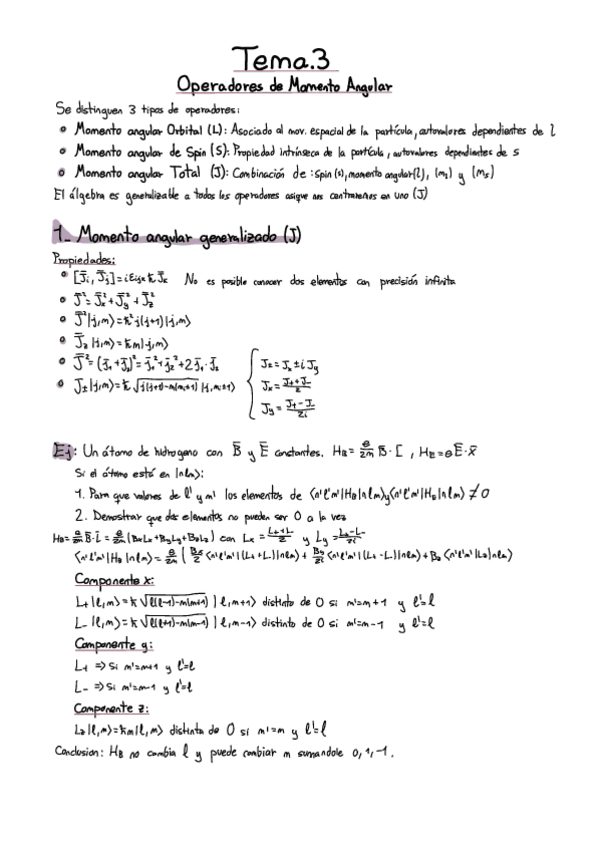 Tema.3
Operadores de Momento Angular
Se distinguen 3 tipos de operadores:
• Momento angular Orbital (L): Asociado al mov. espacial de la partícula, autovalores dependientes de l
• Momento angular de Spin (S): Propiedad intrínseca de la partícula, autovalores dependientes de s
• Momento angular Total (J): Combinación de: spin (s), momento angular (l), (m_l) y (m_s)
El álgebra es generalizable a todos los operadores asique nos centraremos en uno (J)
1_ Momento angular generalizado (J)
Propiedades:
• [J̄i, J̄j]=iεijk ħ J̄k No es posible conocer dos elementos con precisión infinita
• J̄²=J̄x²+J̄y²+J̄z²
• J̄²|j,m⟩=ħ²j(j+1)|j,m⟩
• J̄z|j,m⟩=ħm|j,m⟩
• J̄²=(j̄₁+j̄₂)²=j̄₁²+j̄₂²+2j̄₁·j̄₂
• J±|j,m⟩=ħ√(j(j+1)-m(m±1)) |j,m±1⟩
J±=Jx±iJy
Jx=(J₊+J₋)/2
Jy=(J₊-J₋)/2i
Ej: Un átomo de hidrogeno con B̄ y Ē constantes. HB=e/2m B̄·L̄, HE=eĒ·x̄
Si el átomo está en |nlm⟩:
1. Para que valores de l' y m' los elementos de ⟨n'l'm'|HB|nlm⟩ y ⟨n'l'm'|HE|nlm⟩ ≠0
2. Demostrar que dos elementos no pueden ser 0 a la vez
HB=e/2m B̄·L̄=e/2m(BxLx+ByLy+BzLz) con Lx=(L₊+L₋)/2 y Ly=(L₊-L₋)/2i
⟨n'l'm'|HB|nlm⟩=e/2m[Bx/2⟨n'l'm'|(L₊+L₋)|nlm⟩+By/2i⟨n'l'm'|(L₊-L₋)|nlm⟩+Bz⟨n'l'm'|Lz|nlm⟩]
Componente x:
L₊|l,m⟩=ħ√(l(l+1)-m(m+1)) |l,m+1⟩ distinto de 0 si m'=m+1 y l'=l
L₋|l,m⟩=ħ√(l(l+1)-m(m-1)) |l,m-1⟩ distinto de 0 si m'=m-1 y l'=l
Componente y:
L₊ ⇒ Si m'=m+1 y l'=l
L₋ ⇒ Si m'=m-1 y l'=l
Componente z:
Lz|l,m⟩=ħm|l,m⟩ distinta de 0 si m'=m y l'=l
Conclusion: HB no cambia l y puede cambiar m sumandole 0,1,-1.